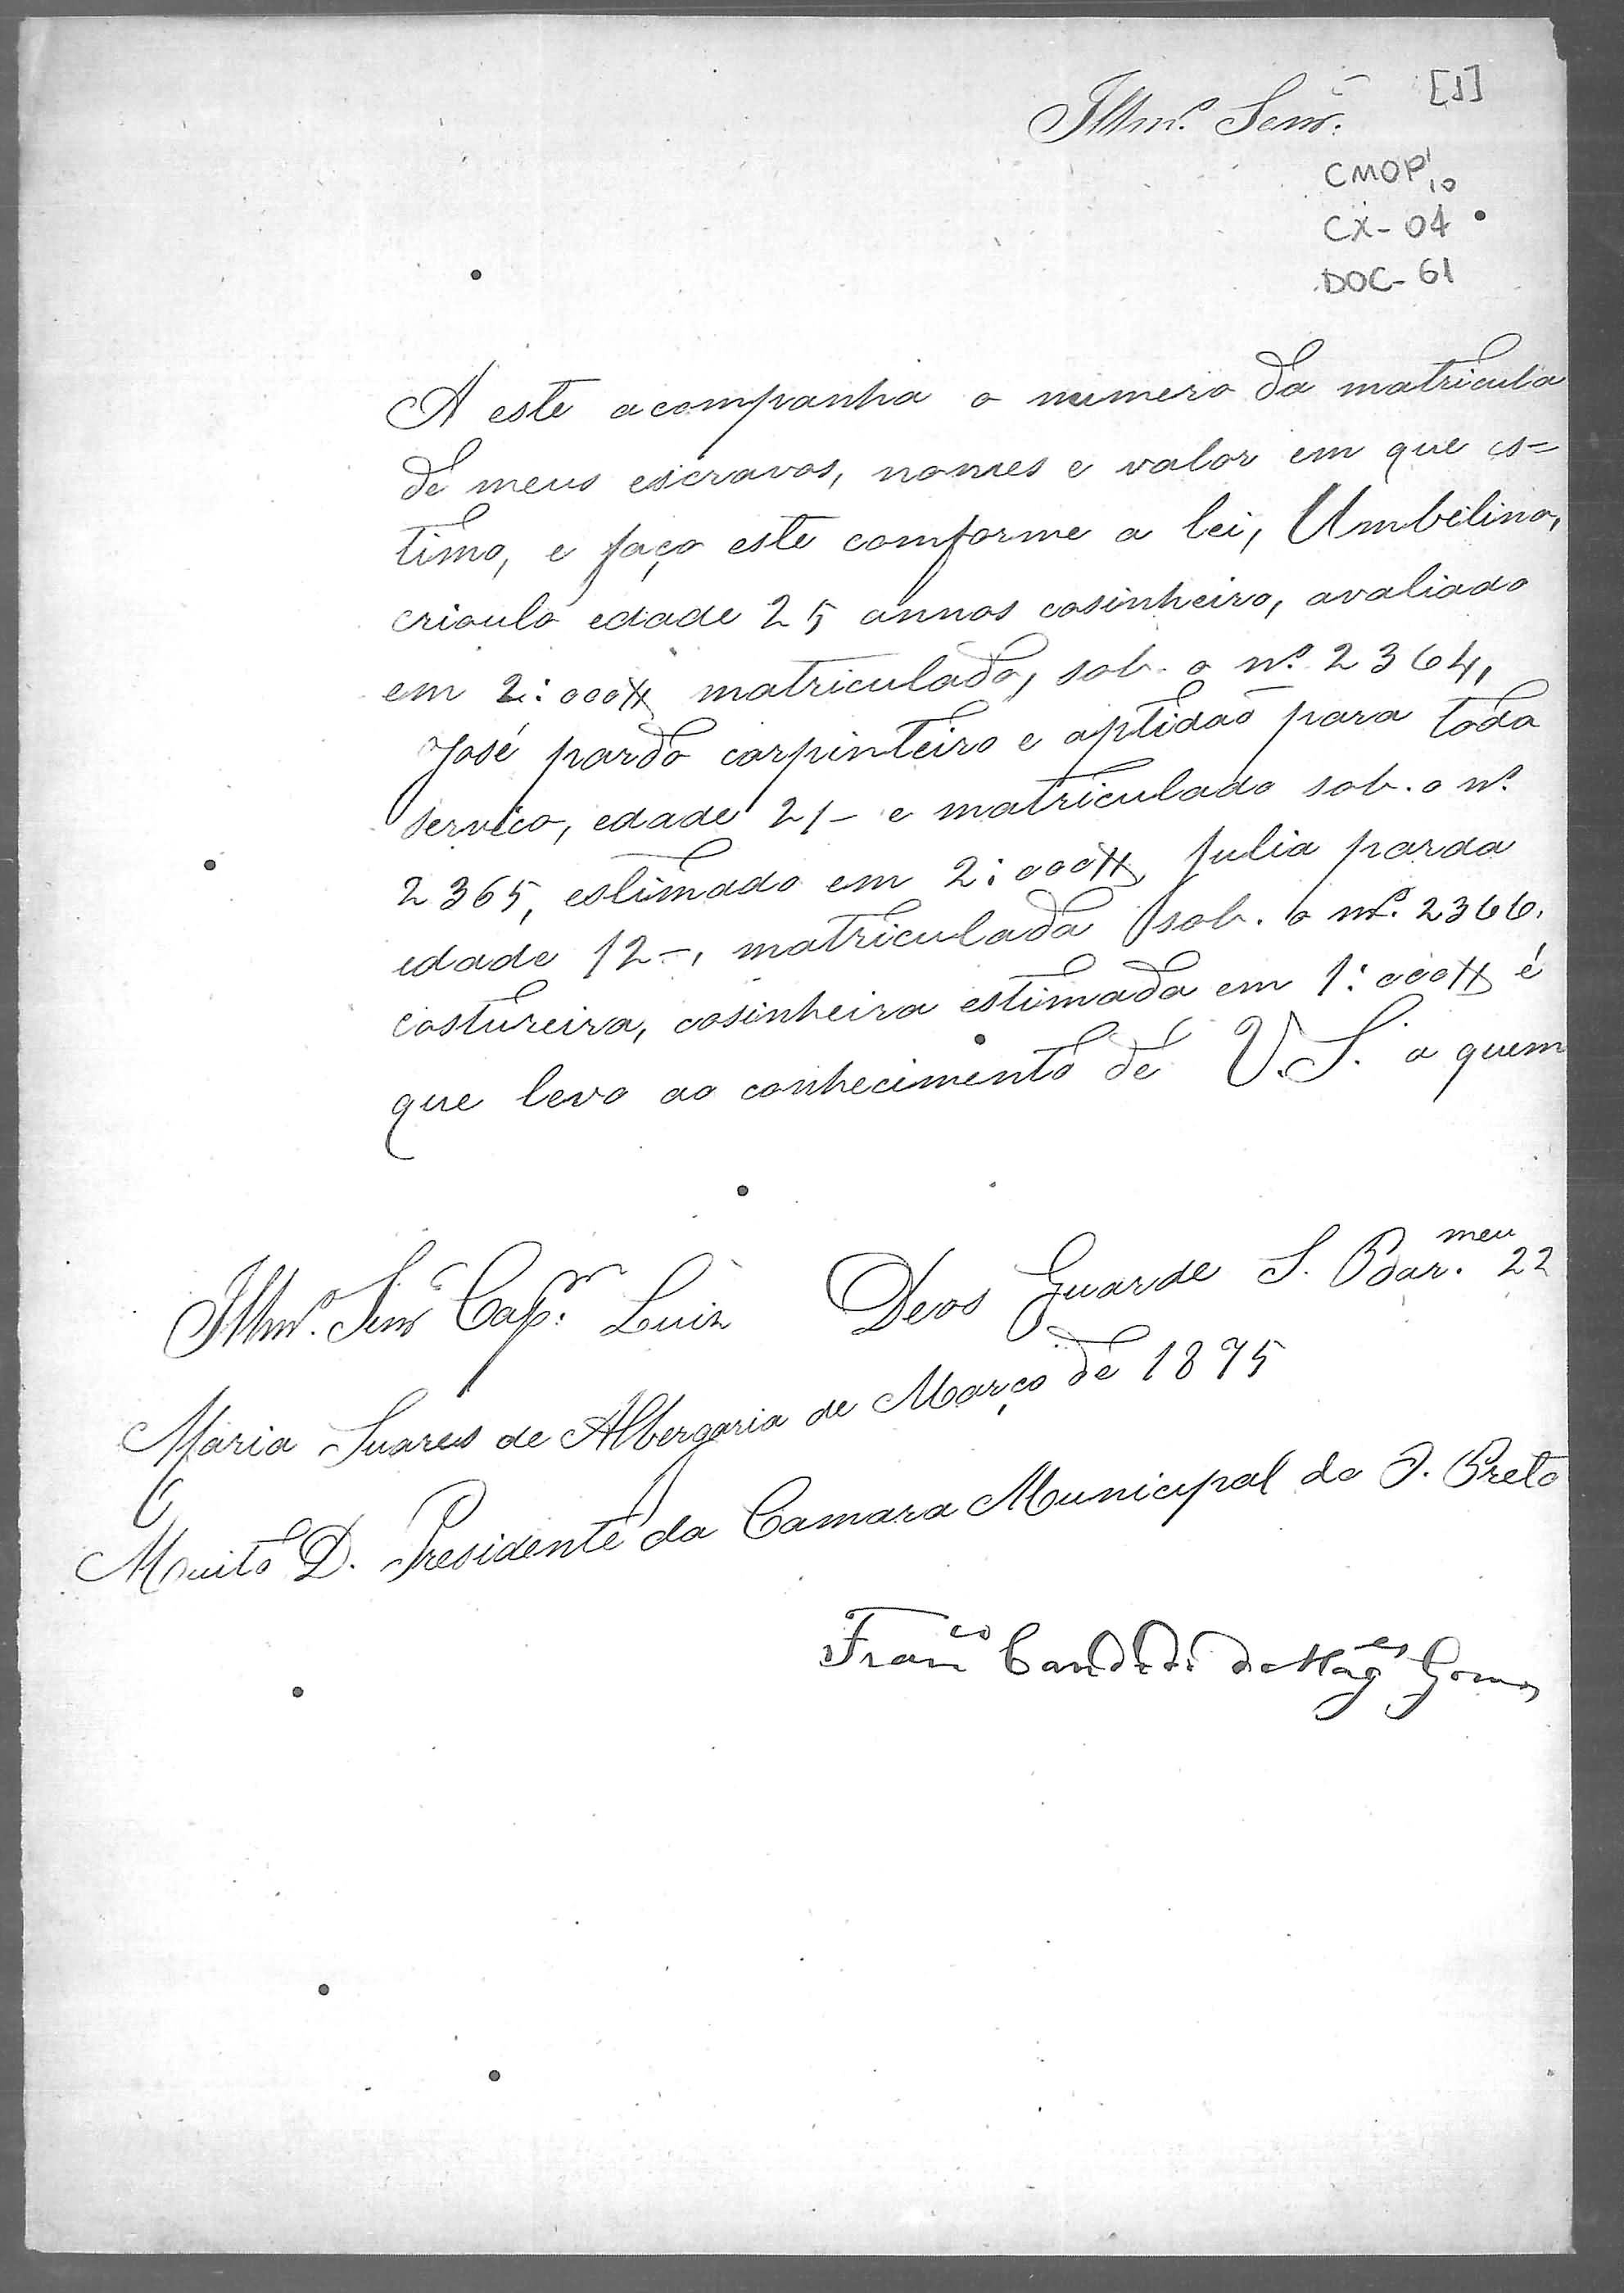 [1]
Illmº. Senr.
CMOP 10
CX-04
DOC-61
A este acompanha o numero da matricula
de meus escravos, nomes e valor em que es=
timo, e faço este comforme a lei, Umbelino,
crioulo edade 25 annos cosinheiro, avaliado
em 2:000$ matriculado, sob. o nº. 2364,
José pardo carpinteiro e aptidaõ para todo
servico, edade 21- e matriculado sob. o nº.
2365, estimado em 2:000$, Julia parda
edade 12-, matriculada sob. o nº. 2366.
costureira, cosinheira estimada em 1:000$ é
que levo ao conhecimento de V.S. a quem
Deos Guarde S. Bar.meu 22
de Março de 1875
Illmº. Senr Capm. Luiz
Maria Suares de Albergaria
Muito D. Presidente da Camara Municipal do O. Preto
Franco Candido de Mages Gomes